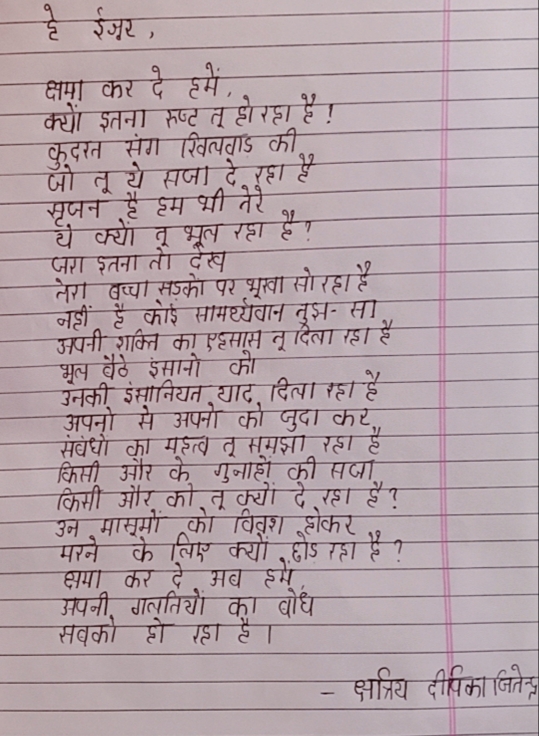 हे ईश्वर,
क्षमा कर दे हमें,
क्यों इतना रूष्ट तू हो रहा है!
कुदरत संग खिलवाड की
जो तू ये सजा दे रहा है
सृजन है हम भी तेरे
ये क्यों तू भूल रहा है?
जरा इतना तो देख
तेरा बच्चा सड़कों पर भूखा सो रहा है
नहीं है कोई सामर्थ्यवान तुझ-सा
अपनी शक्ति का एहसास तू दिला रहा है
भूल बैठे इंसानो को
उनकी इंसानियत याद दिला रहा है
अपनो से अपनो को जुदा कर
संबंधों का महत्व तू समझा रहा है
किसी और के गुनाहों की सजा
किसी और को तू क्यों दे रहा है?
उन मासूमों को विवश होकर
मरने के लिए क्यों छोड रहा है?
क्षमा कर दे अब हमें,
अपनी गलतियों का बोध
सबको हो रहा है।
- क्षत्रिय दीपिका जितेन्द्र